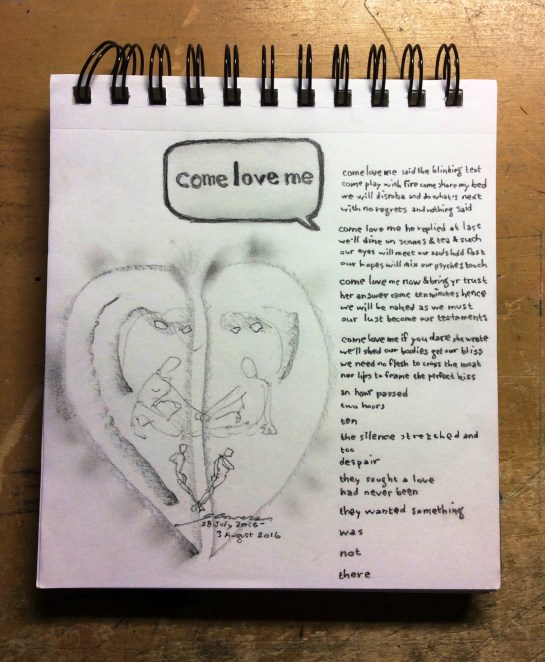 come love me
come love me said the blinking text
come play with fire come share my bed
we will disrobe and do what's next
with no regrets and nothing said
come love me he replied at last
we'll dine on scones & tea & such
our eyes will meet our souls hold fast
our hopes will mix our psyches touch
come love me now & bring yr trust
her answer came ten minutes hence
we will be naked as we must
our lust become our testaments
come love me if you dare she wrote
we'll shed our bodies get our bliss
we need no flesh to cross the moat
nor lips to frame the perfect kiss
an hour passed
two hours
ten
the silence stretched and
too
despair
they sought a love
had never been
they wanted something
was
not
there
28 July 2016 -
3 August 2016